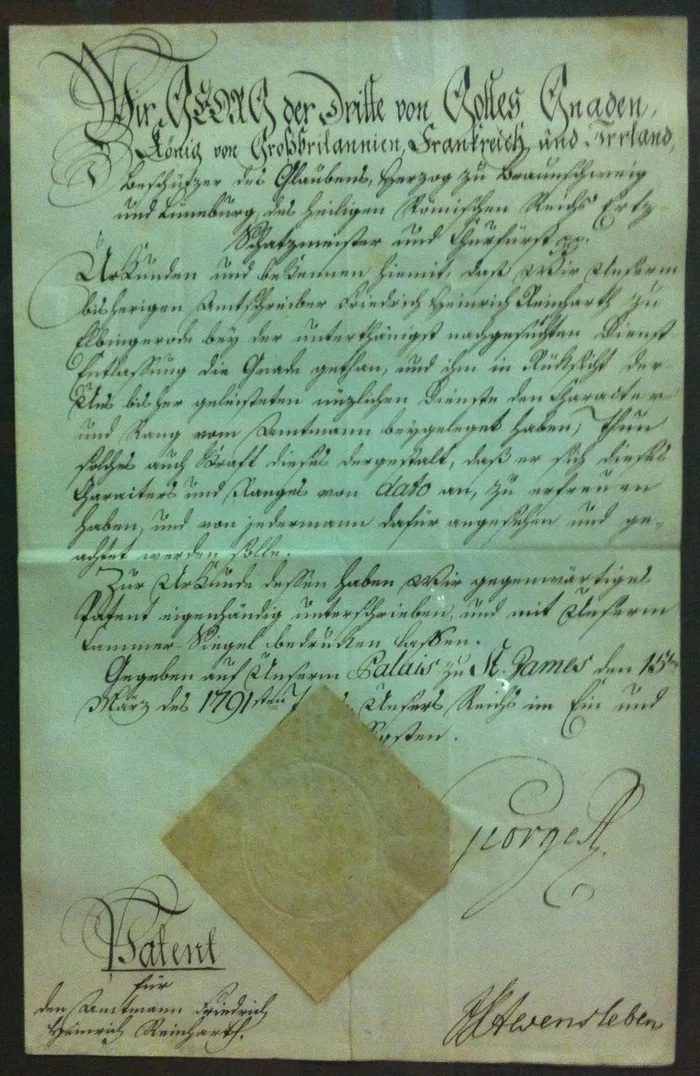 Wir GEORG der Dritte von Gottes Gnaden,
König von Großbritannien, Frankreich und Irrland,
Beschützer des Glaubens, Herzog zu Braunschweig
und Lüneburg, des Heiligen Römischen Reichs Ertz-
Schatzmeister und Churfürst pp.
Urkunden und bekennen hiemit, daß Wir Unserm
bisherigen Amtschreiber Friedrich Heinrich Reinharth zu
Elbingerode bey der unterthänigst nachgesuchten Dienst
Entlassung die Gnade gethan, und ihm in Rücksicht der
Uns bisher geleisteten nüzlichen Dienste den Character
und Rang vom Amtmann beygeleget haben; Thun
solches auch Kraft dieses dergestalt, daß er sich dieses
Characters und Ranges von dato an, zu erfreuen
haben, und von jedermann dafür angesehen und ge-
achtet werden solle.
Zur Urkunde dessen haben Wir gegenwärtiges
Patent eigenhändig unterschrieben, und mit Unserm
Cammer-Siegel bedrucken lassen.
Gegeben auf Unserm Palais zu St. James den 15ten
März des 1791sten Unsers Reichs im Ein und
George R.
Patent
für
den Amtmann Friedrich
Heinrich Reinharth.
Alvensleben